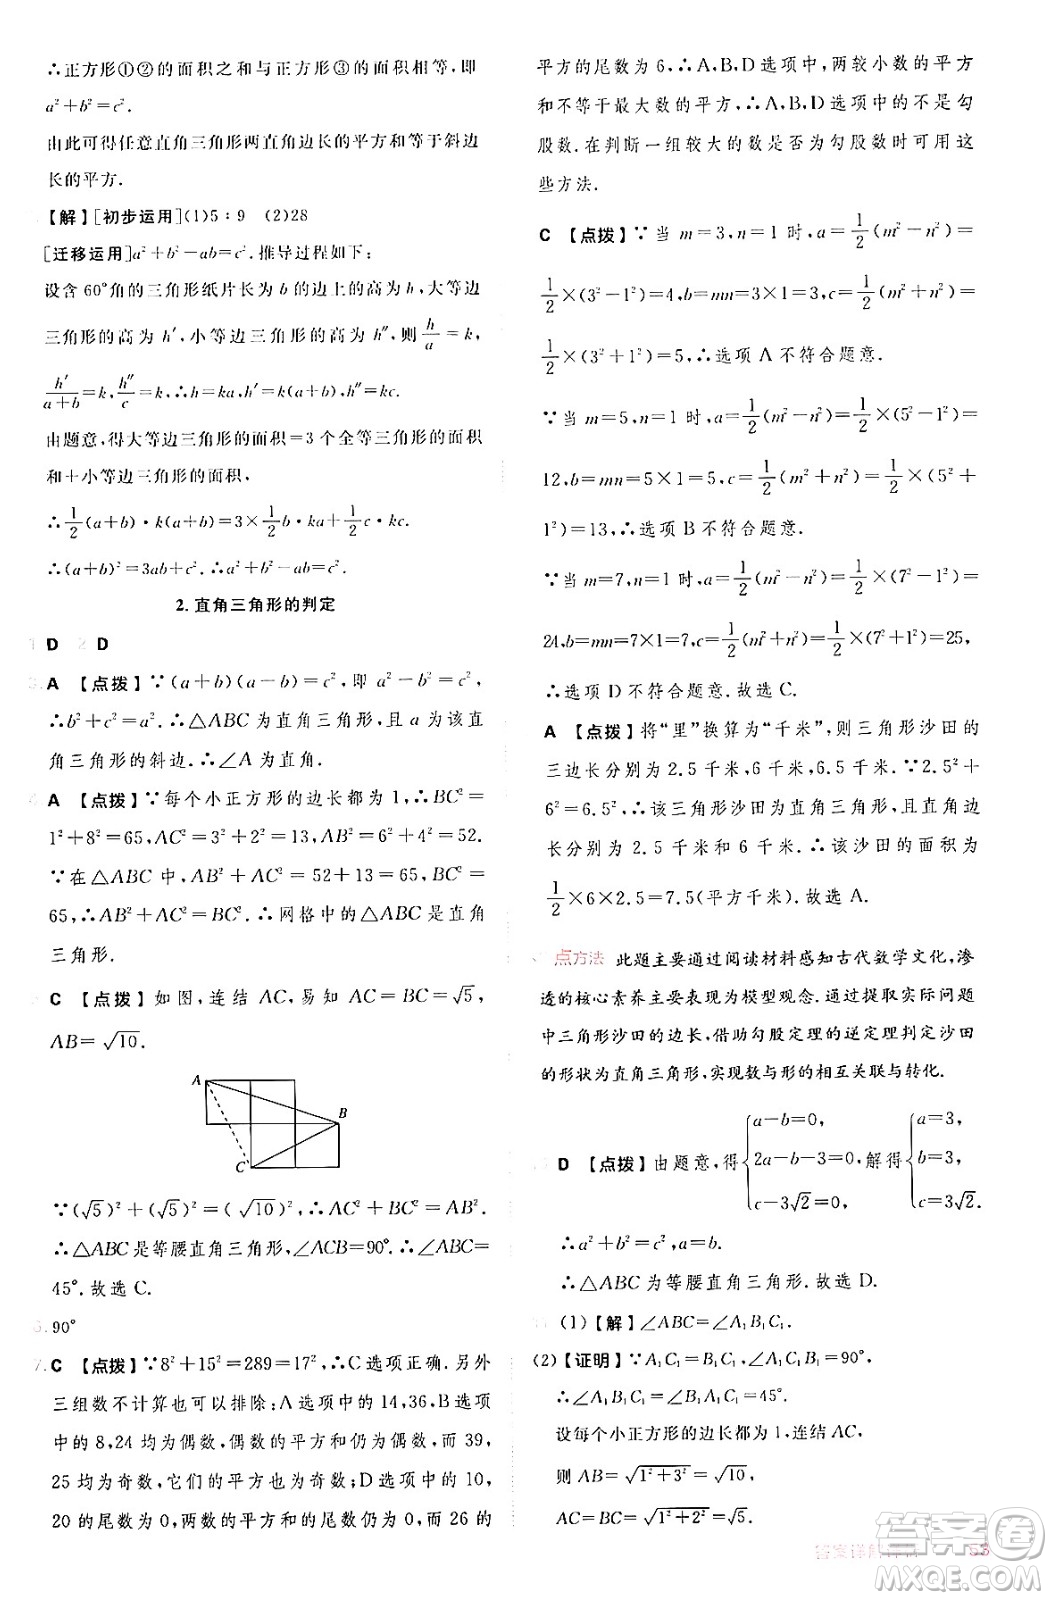 ∴正方形①②的面积之和与正方形③的面积相等,即
a²+b²=c².
由此可得任意直角三角形两直角边长的平方和等于斜边
长的平方.
【解】[初步运用](1)5∶9 (2)28
[迁移运用]a²+b²-ab=c².推导过程如下:
设含 60°角的三角形纸片长为 b 的边上的高为 h,大等边
三角形的高为 h′,小等边三角形的高为 h″,则 h/a=k,
h′/(a+b)=k,h″/c=k,∴h=ka,h′=k(a+b),h″=kc.
由题意,得大等边三角形的面积=3 个全等三角形的面积
和+小等边三角形的面积,
∴1/2(a+b)·k(a+b)=3×1/2b·ka+1/2c·kc.
∴(a+b)²=3ab+c².∴a²+b²-ab=c².
2.直角三角形的判定
1. D 2. D
3. A 【点拨】∵(a+b)(a-b)=c²,即 a²-b²=c²,
∴b²+c²=a².∴△ABC 为直角三角形,且 a 为该直
角三角形的斜边.∴∠A 为直角.
4. A 【点拨】∵每个小正方形的边长都为 1,∴BC²=
1²+8²=65,AC²=3²+2²=13,AB²=6²+4²=52.
∵在△ABC 中,AB²+AC²=52+13=65,BC²=
65,AB²+AC²=BC².∴网格中的△ABC 是直角
三角形.
C 【点拨】如图,连结 AC,易知 AC=BC=√5,
AB=√10.
A
B
C
∵(√5)²+(√5)²=(√10)²,∴AC²+BC²=AB².
∴△ABC 是等腰直角三角形,∠ACB=90°.∴∠ABC=
45°.故选 C.
6. 90°
7. C 【点拨】∵8²+15²=289=17²,∴C 选项正确.另外
三组数不计算也可以排除:A 选项中的 14,36,B 选项
中的 8,24 均为偶数,偶数的平方和仍为偶数,而 39,
25 均为奇数,它们的平方也为奇数;D 选项中的 10,
20 的尾数为 0,两数的平方和的尾数仍然为 0,而 26 的
平方的尾数为 6,∴A,B,D 选项中,两较小数的平方
和不等于最大数的平方,∴A,B,D 选项中的不是勾
股数.在判断一组较大的数是否为勾股数时可使用这
些方法.
C 【点拨】∵当 m=3,n=1 时,a=1/2(m²-n²)=
1/2×(3²-1²)=4,b=mn=3×1=3,c=1/2(m²+n²)=
1/2×(3²+1²)=5,∴选项 A 不符合题意.
∵当 m=5,n=1 时,a=1/2(m²-n²)=1/2×(5²-1²)=
12,b=mn=5×1=5,c=1/2(m²+n²)=1/2×(5²+
1²)=13,∴选项 B 不符合题意.
∵当 m=7,n=1 时,a=1/2(m²-n²)=1/2×(7²-1²)=
24,b=mn=7×1=7,c=1/2(m²+n²)=1/2×(7²+1²)=25,
∴选项 D 不符合题意.故选 C.
A 【点拨】将“里”换算为“千米”,则三角形沙田的
三边长分别为 2.5 千米,6 千米,6.5 千米.∵2.5²+
6²=6.5²,∴该三角形沙田为直角三角形,且直角边
长分别为 2.5 千米和 6 千米.∴该沙田的面积为
1/2×6×2.5=7.5(平方千米).故选 A.
点方法 此题主要通过阅读材料感知古代数学文化,渗
透的核心素养主要表现为模型观念.通过提取实际问题
中三角形沙田的边长,借助勾股定理的逆定理判定沙田
的形状为直角三角形,实现数与形的相互关联与转化.
D 【点拨】由题意,得{a-b=0, 2a-b-3=0, c-3√2=0,解得{a=3, b=3, c=3√2.
∴a²+b²=c²,a=b.
∴△ABC 为等腰直角三角形.故选 D.
(1)【解】∠ABC=∠A₁B₁C₁.
(2)【证明】∵A₁C₁=B₁C₁,∠A₁C₁B₁=90°,
∴∠A₁B₁C₁=45°.
设每个小正方形的边长都为 1,连结 AC,
则 AB=√(1²+3²)=√10,
AC=BC=√(1²+2²)=√5.
答案详解详析 53
答案圈
MXQE.COM